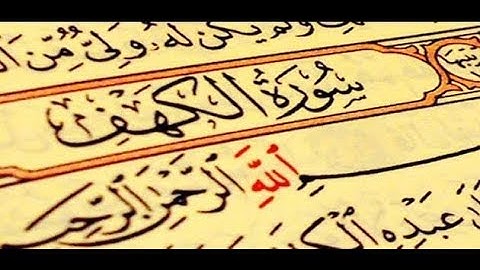 ولم يكن له ولي من ا
سورة الكهف
بسم ٱللَّهِ ٱلرَّحْمَٰنِ ٱلرَّحِي
عَبْدِهِ ٱلْكِ